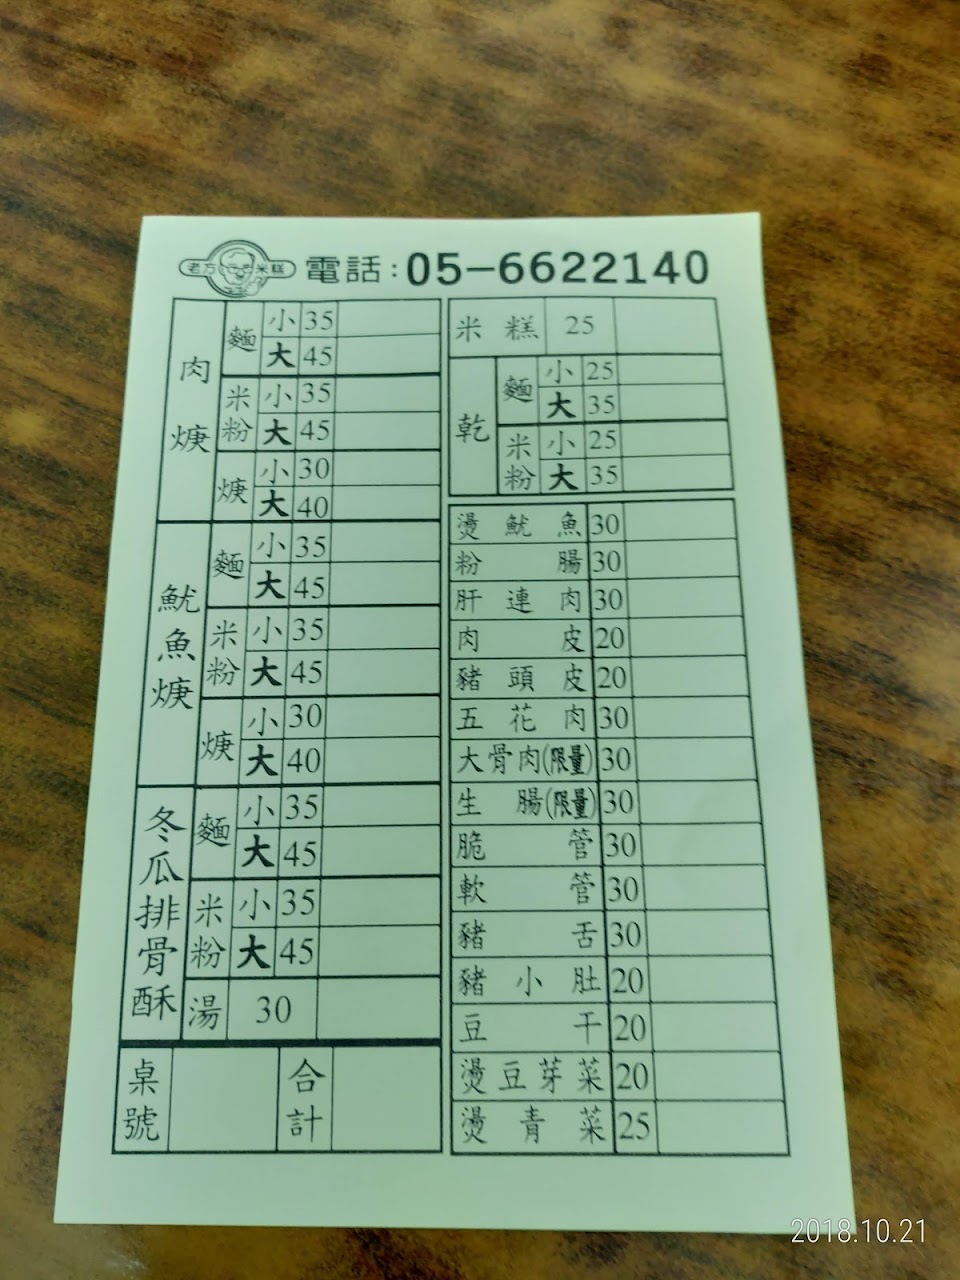 老方米糕 電話:05-6622140
肉焿 麵 小 35
大 45
米粉 小 35
大 45
焿 小 30
大 40
魷魚焿 麵 小 35
大 45
米粉 小 35
大 45
焿 小 30
大 40
冬瓜排骨酥 麵 小 35
大 45
米粉 小 35
大 45
湯 30
桌號 合計
米糕 25
乾 麵 小 25
大 35
米粉 小 25
大 35
燙魷魚 30
粉腸 30
肝連肉 30
肉皮 20
豬頭皮 20
五花肉 30
大骨肉(限量) 30
生腸(限量) 30
脆管 30
軟管 30
豬舌 30
豬小肚 20
豆干 20
燙豆芽菜 20
燙青菜 25
2018.10.21